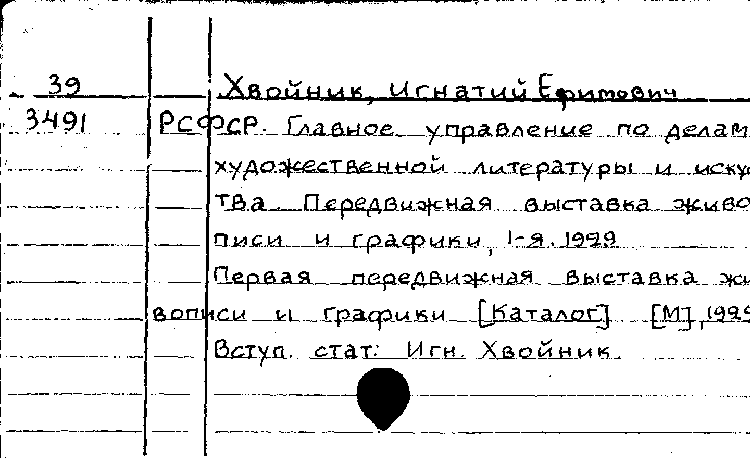 39 Хвойник, Игнатий Ефимович
3491 РСФСР. Главное управление по делам
художественной литературы и искус
тва. Передвижная выставка живо
писи и графики, 1-я. 1929
Первая передвижная выставка жи
вописи и графики [Каталог] [М], 1929
Вступ. стат: Игн. Хвойник.